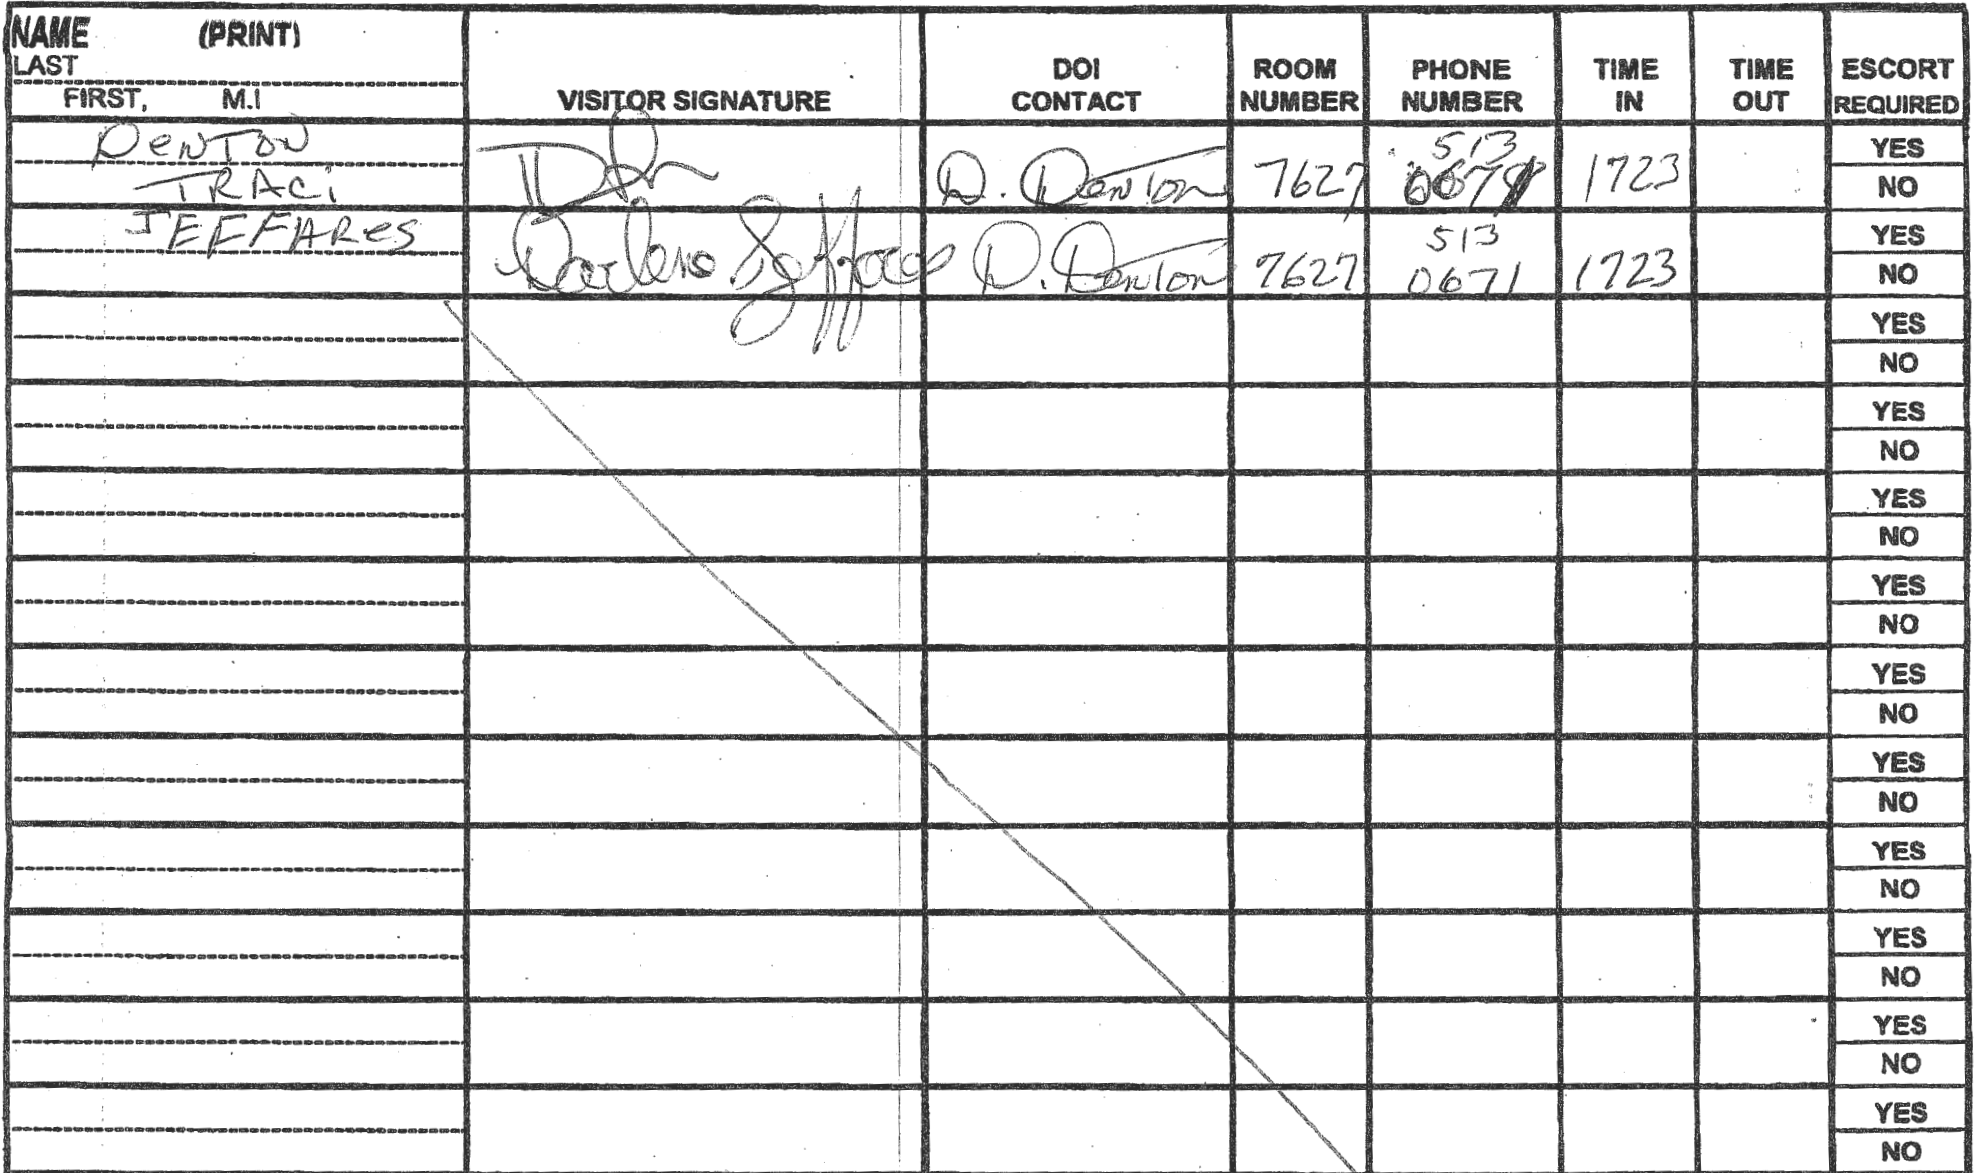 NAME (PRINT)
LAST
FIRST, M.I
VISITOR SIGNATURE
DOI CONTACT
ROOM NUMBER
PHONE NUMBER
TIME IN
TIME OUT
ESCORT REQUIRED
DENTON
TRACi
D. Denton
7627
513
0671
1723
YES
NO
JEFFARes
Darlene Jeffares
D. Denton
7627
513
0671
1723
YES
NO
YES
NO
YES
NO
YES
NO
YES
NO
YES
NO
YES
NO
YES
NO
YES
NO
YES
NO
YES
NO